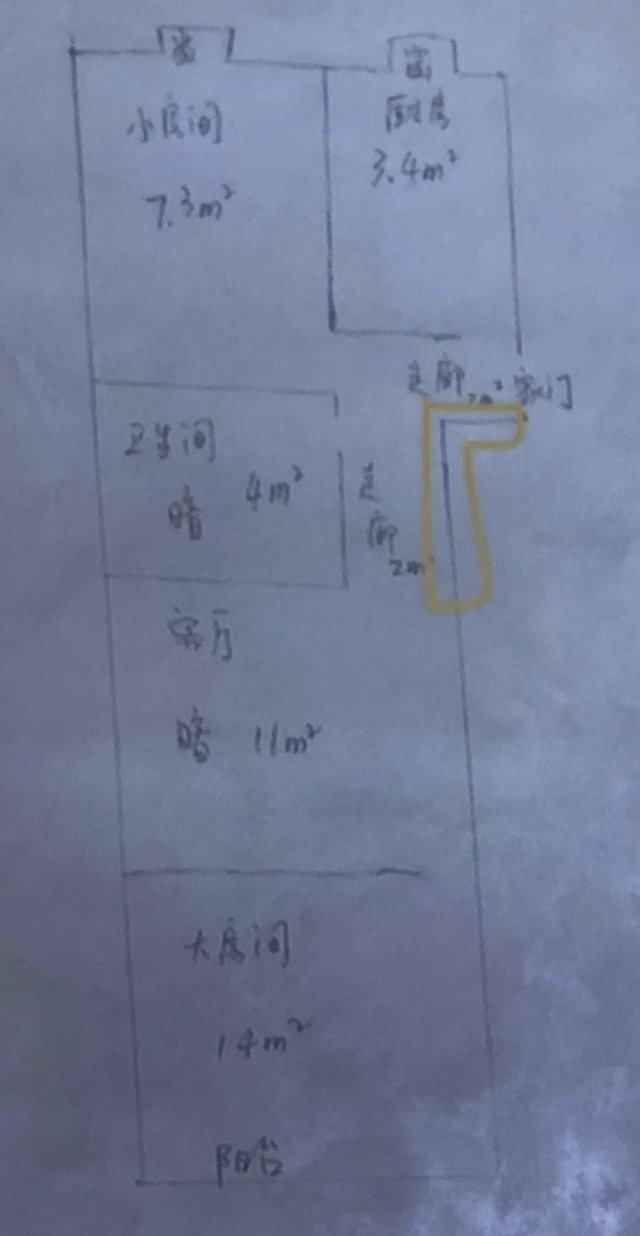 窗
窗
小房间
7.3m²
厨房
3.4m²
走廊 2m² 家门
卫生间
暗 4m²
走廊
2m²
客厅
暗 11m²
大房间
14m²
阳台